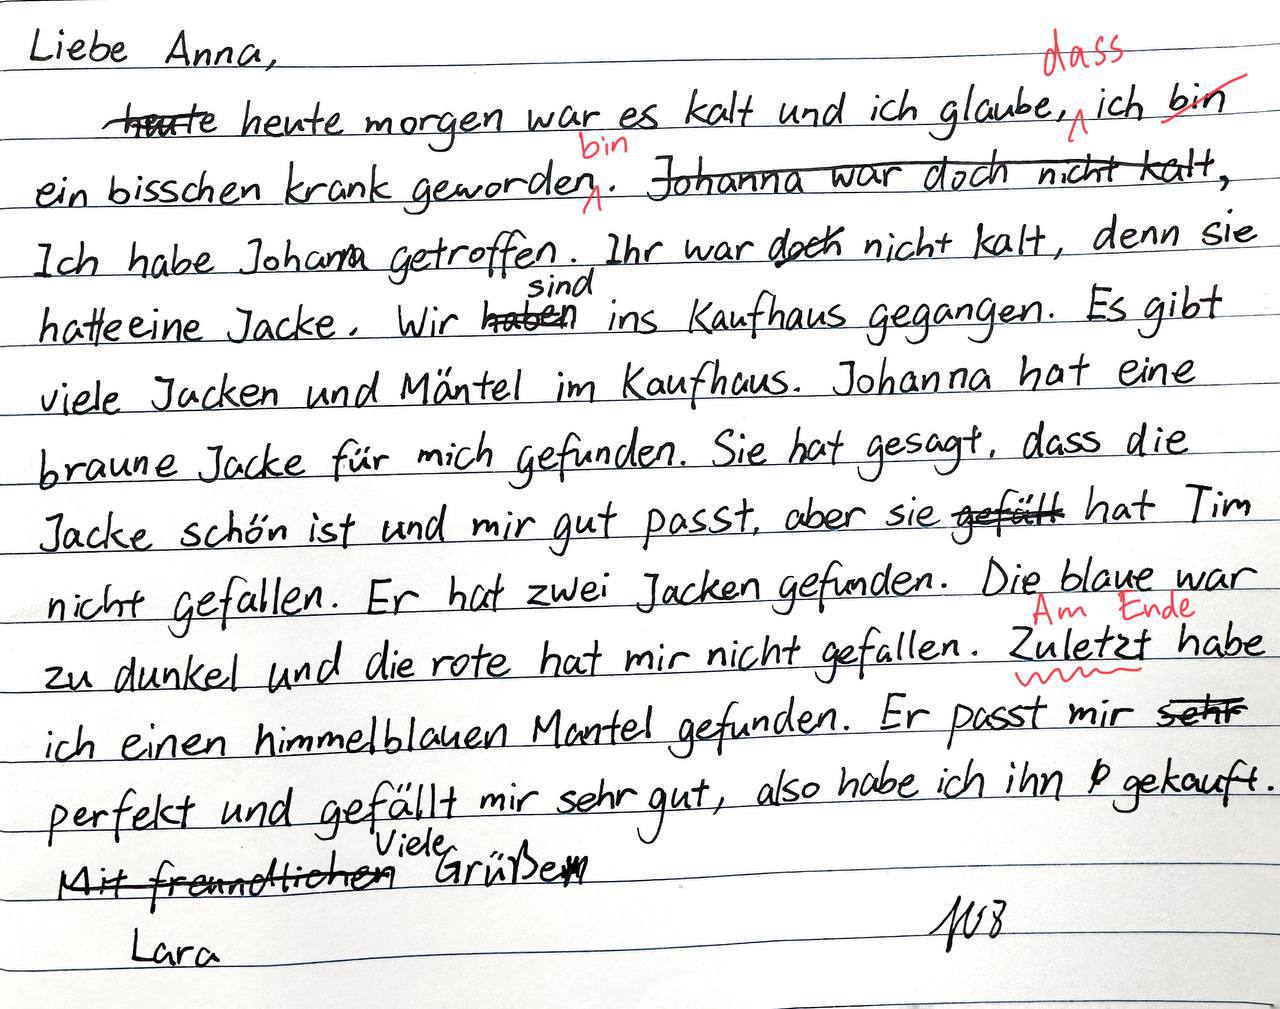 Liebe Anna,
dass
heute heute morgen war es kalt und ich glaube, ich bin
bin
ein bisschen krank geworden. Johanna war doch nicht kalt,
Ich habe Johanna getroffen. Ihr war doch nicht kalt, denn sie
sind
hatte eine Jacke. Wir haben ins Kaufhaus gegangen. Es gibt
viele Jacken und Mäntel im Kaufhaus. Johanna hat eine
braune Jacke für mich gefunden. Sie hat gesagt, dass die
Jacke schön ist und mir gut passt, aber sie gefällt hat Tim
nicht gefallen. Er hat zwei Jacken gefunden. Die blaue war
Am Ende
zu dunkel und die rote hat mir nicht gefallen. Zuletzt habe
ich einen himmelblauen Mantel gefunden. Er passt mir sehr
perfekt und gefällt mir sehr gut, also habe ich ihn gekauft.
Viele
Mit freundlichen Grüßen
Lara
108